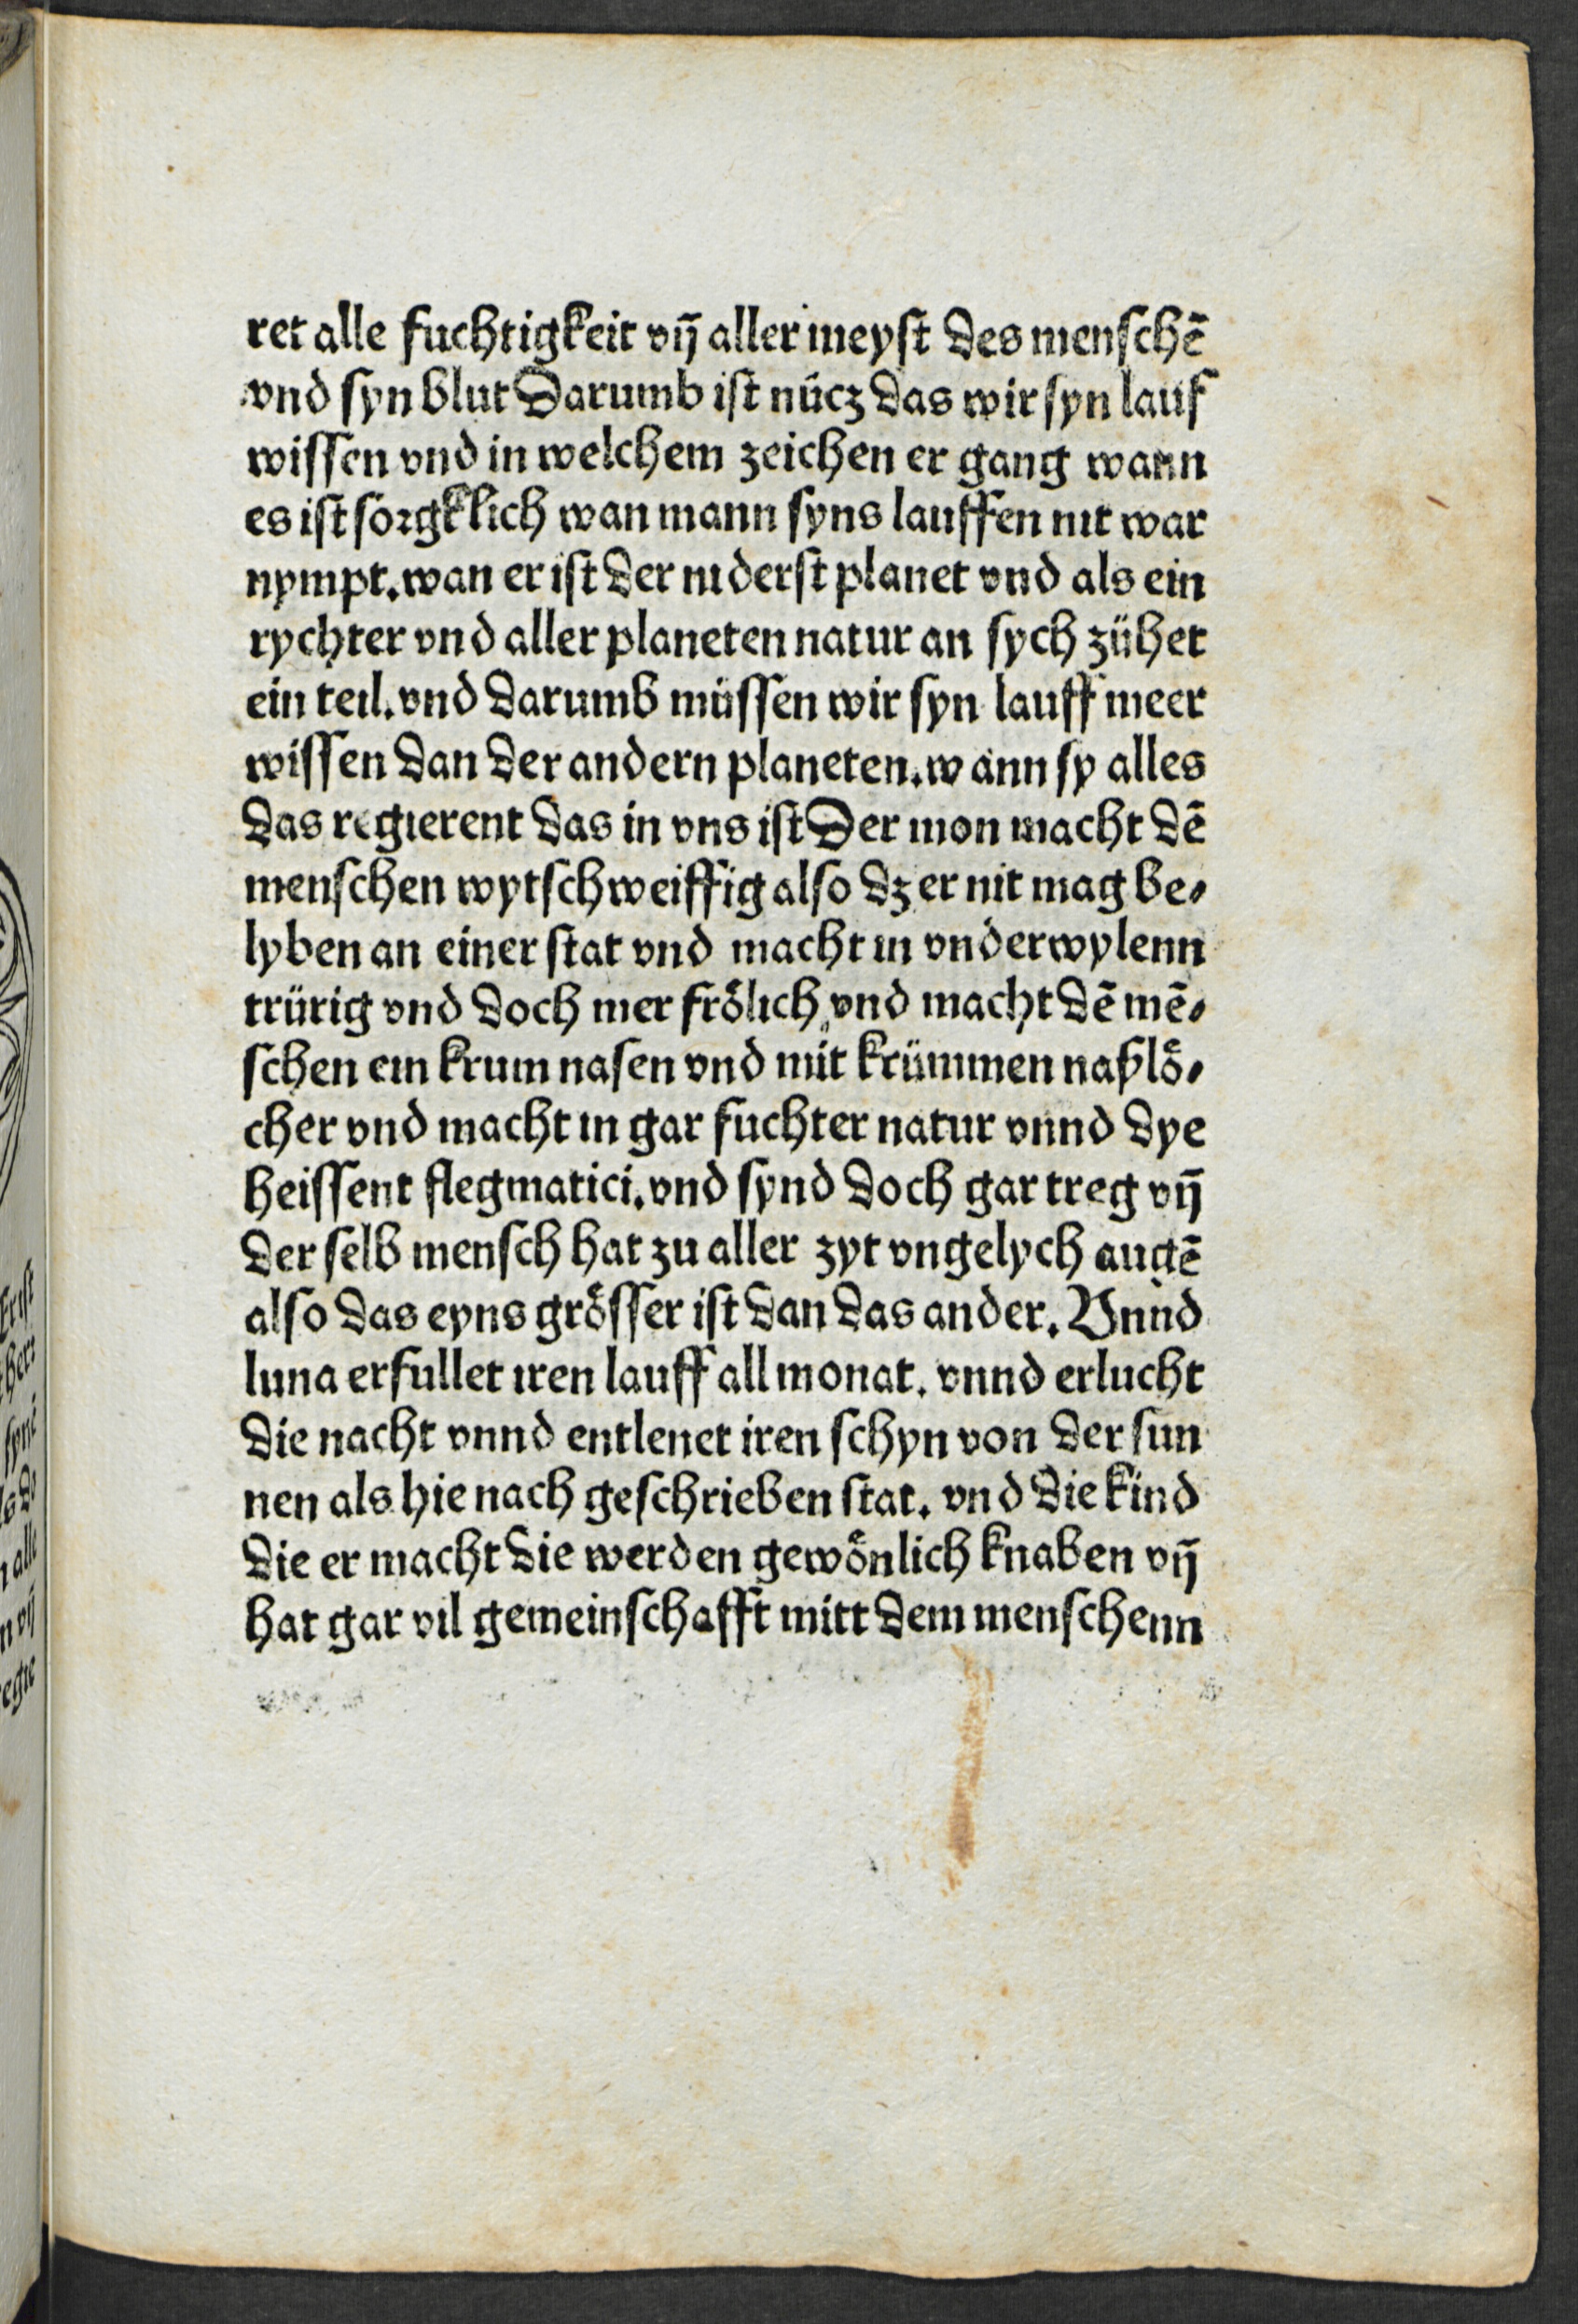 ret alle fuchtigkeit vn̄ aller meyst des menschē
vnd syn blut Darumb ist nücz das wir syn lauf
wissen vnd in welchem zeichen er gang wann
es ist sorgklich wan mann syns lauffen nit war
nympt. wan er ist der niderst planet vnd als ein
rychter vnd aller planeten natur an sych zühet
ein teil. vnd darumb müssen wir syn lauff meer
wissen dan der andern planeten. wann sy alles
das regierent das in vns ist Der mon macht dē
menschen wytschweiffig also dz er nit mag be⸗
lyben an einer stat vnd macht in vnderwylenn
trürig vnd doch mer frölich vnd macht dē mē⸗
schen ein krum nasen vnd mit krümmen naßlö⸗
cher vnd macht in gar fuchter natur vnnd dye
heissent flegmatici. vnd synd doch gar treg vn̄
der selb mensch hat zu aller zyt vngelych augē
also das eyns grösser ist dan das ander. Vnnd
luna erfullet iren lauff all monat. vnnd erlucht
die nacht vnnd entlenet iren schyn von der sun
nen als hie nach geschrieben stat. vnd die kind
die er macht die werden gewönlich knaben vn̄
hat gar vil gemeinschafft mitt dem menschenn